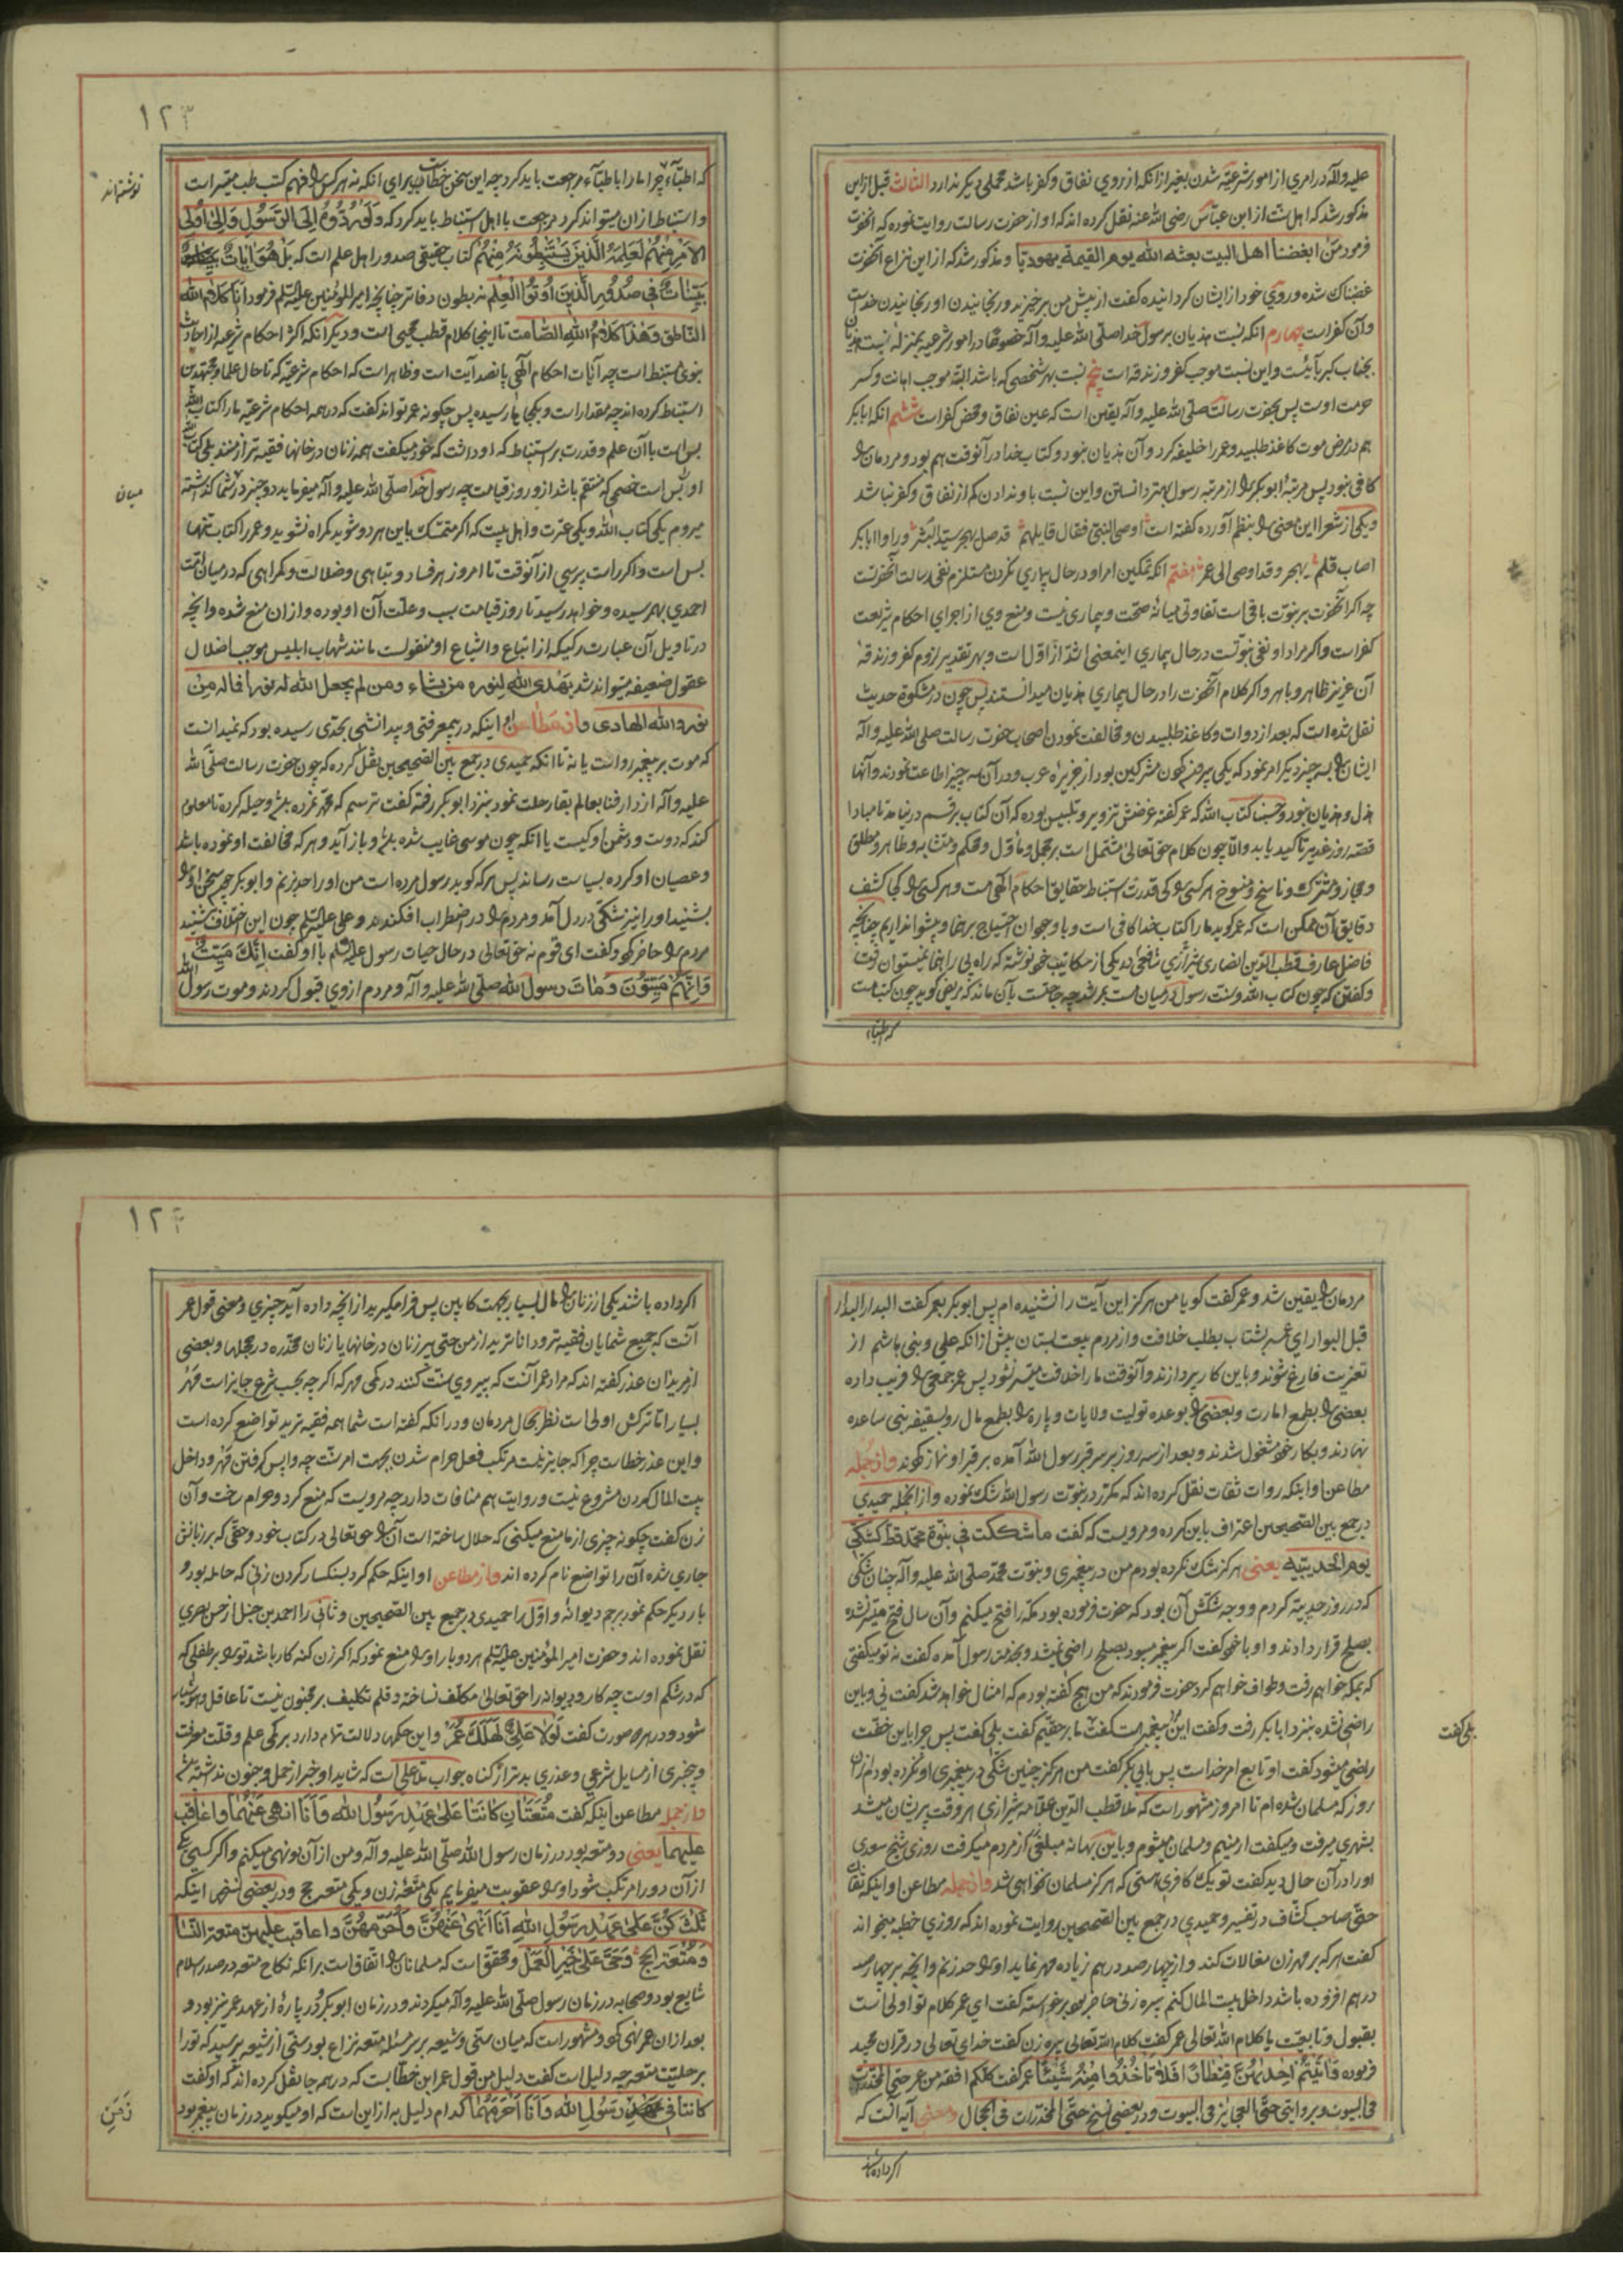 علیه وآله در امری از امور شرعیه شدن بغیر از انکه از روی نفاق وکفر باشد محملی دیکر ندارد الثالث قبل ازین
مذکور شد که اهل سنت از ابن عباس رضی الله عنه نقل کرده اند که او از حضرت رسالت روایت نموده که آنحضرت
فرمود من ابغضنا اهل البیت بعثه الله یوم القیمة یهودیا ومذکور شد که از این نزاع آنحضرت
غضبناک شده وروی خود از ایشان کردانیده کفت از پیش من برخیزید ورنجانیدن او رنجانیدن خداست
وآن کفر است چهارم انکه نسبت هذیان برسول خدا صلی الله علیه وآله خصوصا در امور شرعیه بمنزله نسبت هذیان
بجناب کبریائیست واین نسبت موجب کفر وزندقه است پنجم نسبت بهر شخصی که باشد البته موجب اهانت وکسر
حرمت اوست پس بحضرت رسالت صلی الله علیه وآله یقین است که عین نفاق ومحض کفر است ششم انکه ابابکر
هم در مرض موت کاغذ طلبید وعمر را خلیفه کرد وآن هذیان نبود وکتاب خدا در آنوقت هم بود ومردمان را
کافی نبود پس مرتبه ابوبکر را از مرتبه رسول بهتر دانستن واین نسبت باو ندادن کم از نفاق وکفر نباشد
ویکی از شعرا این معنی را بنظم آورده کفته است اوصی النبی فقال قایلهم قد ضل یهجر سید البشر وراوا ابابکر
اصاب فلم یهجر وقد اوصی الی عمر هفتم انکه تمکین امر او در حال بیماری نکردن مستلزم نفی رسالت آنحضرتست
چه اکر آنحضرت بر نبوت باقی است تفاوتی میانه صحت وبیماری نیست ومنع وی از اجرای احکام شریعت
کفر است واکر مراد او نفی نبوتست در حال بیماری اینمعنی اشد از اول است وبهر تقدیر لزوم کفر وزندقه
آن عزیز ظاهر وباهر واکر کلام آنحضرت را در حال بیماری هذیان میدانستند پس چون در مشکوة حدیث
نقل شده است که بعد از دوات وکاغذ طلبیدن ومخالفت نمودن اصحاب حضرت رسالت صلی الله علیه وآله
ایشان را بسه چیز دیکر امر نمود که یکی بیرون کردن مشرکین بود از جزیره عرب ودر آن سه چیز اطاعت نمودند وآنها
هذل وهذیان نبود وحسبنا کتاب الله که عمر کفته غرضش تزویر وتلبیس بوده که آن کتاب بر قسم در نیاید تا مبادا
قصه روز غدیر تاکید یابد والا چون کلام حق تعالی مشتمل است بر مجمل وماول ومحکم ومتشابه وظاهر ومطلق
ومجاز ومشترک وناسخ ومنسوخ هر کسی را کی قدرت استنباط حقایق احکام الهی هست وهر کسی را کی کشف
دقایق آن ممکن است که عمر کوید ما را کتاب خدا کافی است وبا وجود آن احتیاج برهنما وپیشوا نداریم چنانچه
فاضل عارف قطب الدین انصاری شیرازی شافعی در یکی از مکاتیب خود نوشته که راه بی راهنما نمیتوان رفت
وکفتن که چون کتاب الله وسنت رسول در میان هست بمرشد چه حاجتست بآن ماند که مریض کوید چون کتب هست
که اطباء
١٢٣
که اطباء چرا ما را باطباء مرجعت باید کرد چه این سخن خطاست برای انکه نه هر کس را فهم کتب طب میسر است
نوشته اند
واستنباط از ان میتواند کرد مرجعت با اهل استنباط باید کرد که ولو ردوه الی الرسول والی اولی
الامر منهم لعلمه الذین یستنبطونه منهم کتاب حقیقی صدور اهل علم است که بل هو آیات
بینات فی صدور الذین اوتوا العلم نه بطون دفاتر چنانچه امیر المؤمنین علیه السلم فرمود انا کلام الله
الناطق وهذا کلام الله الصامت تا اینجا کلام قطب محیی است ودیکر انکه اکثر احکام شرعیه از احادیث
نبوی مستنبط است چه آیات احکام الهی پانصد آیت است وظاهر است که احکام شرعیه که تا حال علما ومجتهدین
استنباط کرده اند چه مقدار است وبکجا رسیده پس چکونه عمر تواند کفت که در همه احکام شرعیه ما را کتاب الله
بس است با آن علم وقدرت بر استنباط که او داشت که خود میکفت همه زنان در خانها فقیه تر از منند بلی کتاب الله
او را بس است خصمی که منتقم باشد از و روز قیامت چه رسول خدا صلی الله علیه وآله میفرماید دو چیز در شما کذاشته
میان
میروم یکی کتاب الله ویکی عترت واهل بیت که اکر متمسک باین هر دو شوید کمراه نشوید وعمر را کتاب تنها
بس است واکر راست پرسی از آنوقت تا امروز هر فساد وتباهی وضلالت وکمراهی که در میان امت
احمدی بهم رسیده وخواهد رسید تا روز قیامت سبب وعلت آن او بوده واز ان منع شده وانچه
در تاویل آن عبارت رکیکه از اتباع واشیاع او منقولست مانند شهاب ابلیس موجب اضلال
عقول ضعیفه میتواند شد یهدی الله لنوره من یشاء ومن لم یجعل الله له نورا فما له من
نور والله الهادی واز مطاعن او اینکه در بیمعرفتی وبیدانشی بحدی رسیده بود که نمیدانست
که موت بر پیغمبر رواست یا نه تا انکه حمیدی در جمع بین الصحیحین نقل کرده که چون حضرت رسالت صلی الله
علیه وآله از دار فنا بعالم بقا رحلت نمود بنزد ابوبکر رفته کفت ترسیم که محمد نمرده باشد وحیله کرده تا معلوم
کند که دوست ودشمن او کیست یا انکه چون موسی غایب شده باشد وباز آید وهر که مخالفت او نموده باشد
وعصیان او کرده بسیاست رساند پس هر که کوید رسول مرده است من او را حد بزنم وابوبکر چون سخن او را
بشنید او را نیز شکی در دل آمد ومردم را در اضطراب افکندند وعلی علیه السلم چون این اختلاف شنید
مردم را حاضر کرد وکفت ای قوم نه حق تعالی در حال حیات رسول علیه السلم با او کفت انک میت
وانهم میتون ومات رسول الله صلی الله علیه وآله ومردم از وی قبول کردند وموت رسول الله
مردمان را یقین شد وعمر کفت کویا من هرکز این آیت را نشنیده ام پس ابوبکر بعمر کفت البدار البدار
قبل البوار ای عمر بشتاب بطلب خلافت واز مردم بیعت بستان پیش از انکه علی وبنی هاشم از
تعزیت فارغ شوند وباین کار پردازند وآنوقت ما را خلافت میسر نشود پس عمر جمعی را فریب داده
بعضی را بطمع امارت وبعضی را بوعده تولیت ولایات وپاره را بطمع مال رو بسقیفه بنی ساعده
نهادند وبکار خود مشغول شدند وبعد از سه روز بر سر قبر رسول الله آمده بر قبر او نماز کردند واز جمله
مطاعن او اینکه روات ثقات نقل کرده اند که مکرر در نبوت رسول الله شک نموده واز انجمله حمیدی
در جمع بین الصحیحین اعتراف باین کرده ومرویست که کفت ما شککت فی نبوة محمد قط کشکی
یوم الحدیبیه یعنی هرکز شک نکرده بودم من در پیغمبری ونبوت محمد صلی الله علیه وآله چنان شکی
که در روز حدیبیه کردم ووجه شکش آن بود که حضرت فرموده بود مکه را فتح میکنم وآن سال فتح میسر نشد
بصلح قرار دادند واو با خود کفت اکر پیغمبر میبود بصلح راضی نمیشد وبخدمت رسول آمده کفت نه تو میکفتی
که بمکه خواهیم رفت وطواف خواهیم کرد حضرت فرمودند که من هیچ کفته بودم که امسال خواهد شد کفت نی وباین
راضی نشده بنزد ابابکر رفت وکفت این پیغمبر است کفت ما بر حقیم کفت بلی کفت پس چرا باین خفت
بلی کفت
راضی میشود کفت او تابع امر خداست پس بابی بکر کفت من هرکز چنین شکی در پیغمبری او نکرده بودم از ان
روز که مسلمان شده ام تا امروز مشهور است که ملا قطب الدین علامه شیرازی هر وقت پریشان میشد
بشهری میرفت ومیکفت ارمنیم ومسلمان میشوم وباین بهانه مبلغی از مردم میکرفت روزی شیخ سعدی
او را در آن حال دید کفت تو یک کافری هستی که هرکز مسلمان نخواهی شد واز جمله مطاعن او اینکه ثقات
حتی صاحب کشاف در تفسیر وحمیدی در جمع بین الصحیحین روایت نموده اند که روزی خطبه میخواند
کفت هر که بر مهر زن مغالات کند واز چهار صد درهم زیاده مهر نماید او را حد زنم وانچه بر چهار صد
درهم افزوده باشد داخل بیت المال کنم پیره زنی حاضر بود برخواسته کفت ای عمر کلام تو اولی است
بقبول ومتابعت یا کلام الله تعالی عمر کفت کلام الله تعالی پیره زن کفت خدای تعالی در قران مجید
فرموده وآتیتم احدیهن قنطارا فلا تأخذوا منه شیئا عمر کفت کلکم افقه من عمر حتی المخدرات
فی البیوت وبروایتی حتی العجایز فی البیوت ودر بعضی نسخ حتی المخدرات فی الحجال ومعنی آیه آنست که
اکر داده باشند
١٢٤
اکر داده باشند یکی از زنان را مال بسیار بجهت کابین پس فرا مکیرید از انچه داده آید چیزی ومعنی قول عمر
آنست که جمیع شمایان فقیه تر ودانا ترید از من حتی پیر زنان در خانها یا زنان مخدره در حجلها وبعضی
از مریدان عذر کفته اند که مراد عمر آنست که پیروی سنت کنند در کمی مهر که اکر چه بحسب شرع جایز است مهر
بسیار اما ترکش اولی است نظر بحال مردمان ودر انکه کفته است شما همه فقیه ترید تواضع کرده است
واین عذر خطاست چرا که جایز نیست مرتکب فعل حرام شدن بجهت امر سنت چه واپس کرفتن مهر وداخل
بیت المال کردن مشروع نیست وروایت هم منافات دارد چه مرویست که منع کرد وحرام ساخت وآن
زن کفت چکونه چیزی از ما منع میکنی که حلال ساخته است آن را حق تعالی در کتاب خود وحقی که بر زبانش
جاری شده آن را تواضع نام کرده اند واز مطاعن او اینکه حکم کرد بسنکسار کردن زنی که حامله بود و
بار دیکر حکم نمود برجم دیوانه واول را حمیدی در جمع بین الصحیحین وثانی را احمد بن حنبل از حسن بصری
نقل نموده اند وحضرت امیر المؤمنین علیه السلم هر دو بار او را منع نمود که اکر زن کنه کار باشد تو را بر طفلی که
که در شکم اوست چه کار ودیوانه را حق تعالی مکلف نساخته وقلم تکلیف بر مجنون نیست تا عاقل وهوشیار
شود ودر هر دو صورت کفت لولا علی لهلک عمر واین حکمها دلالت تمام دارد بر کمی علم وقلت معرفت
وبیخبری از مسایل شرعی وعذری بدتر از کناه جواب ملا علی است که شاید او خبر از حمل وجنون نداشته باشد
واز جمله مطاعن اینکه کفت متعتان کانتا علی عهد رسول الله وانا انهی عنهما واعاقب
علیهما یعنی دو متعه بود در زمان رسول الله صلی الله علیه وآله ومن از آن دو نهی میکنم واکر کسی یکی
از آن دو را مرتکب شود او را عقوبت میفرمایم یکی متعه زن ویکی متعه حج ودر بعضی نسخ اینکه
ثلث کن علی عهد رسول الله انا انهی عنهن واحرمهن واعاقب علیهن متعة النسا
ومتعة الحج وحی علی خیر العمل ومحقق است که مسلمانان را اتفاق است بر انکه نکاح متعه در صدر اسلام
شایع بود وصحابه در زمان رسول صلی الله علیه وآله میکردند ودر زمان ابوبکر ودر پاره از عهد عمر نیز بود و
بعد از ان عمر نهی کرد ومشهور است که میان سنی وشیعه بر سر مسئله متعه نزاع بود سنی از شیعه پرسید که تو را
بر حلیت متعه چه دلیل است کفت دلیل من قول عمر ابن خطابست که در همه جا نقل کرده اند که او کفت
کانتا فی عهد رسول الله وانا احرمهما کدام دلیل به از این است که او میکوید در زمان پیغمبر بود
زمن